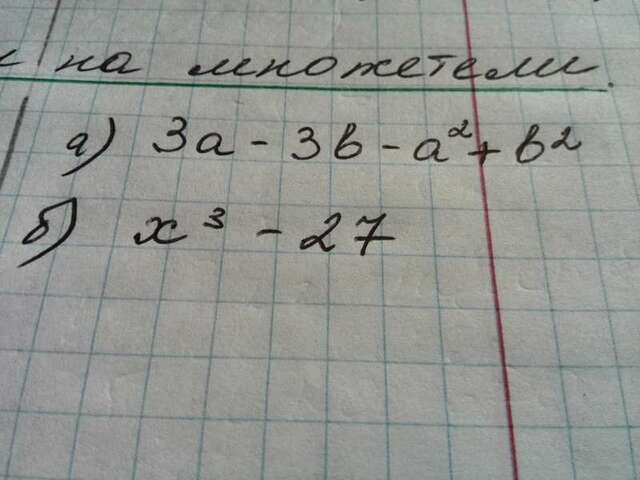 на множетели.
а) 3a - 3b - a² + b²
б) x³ - 27